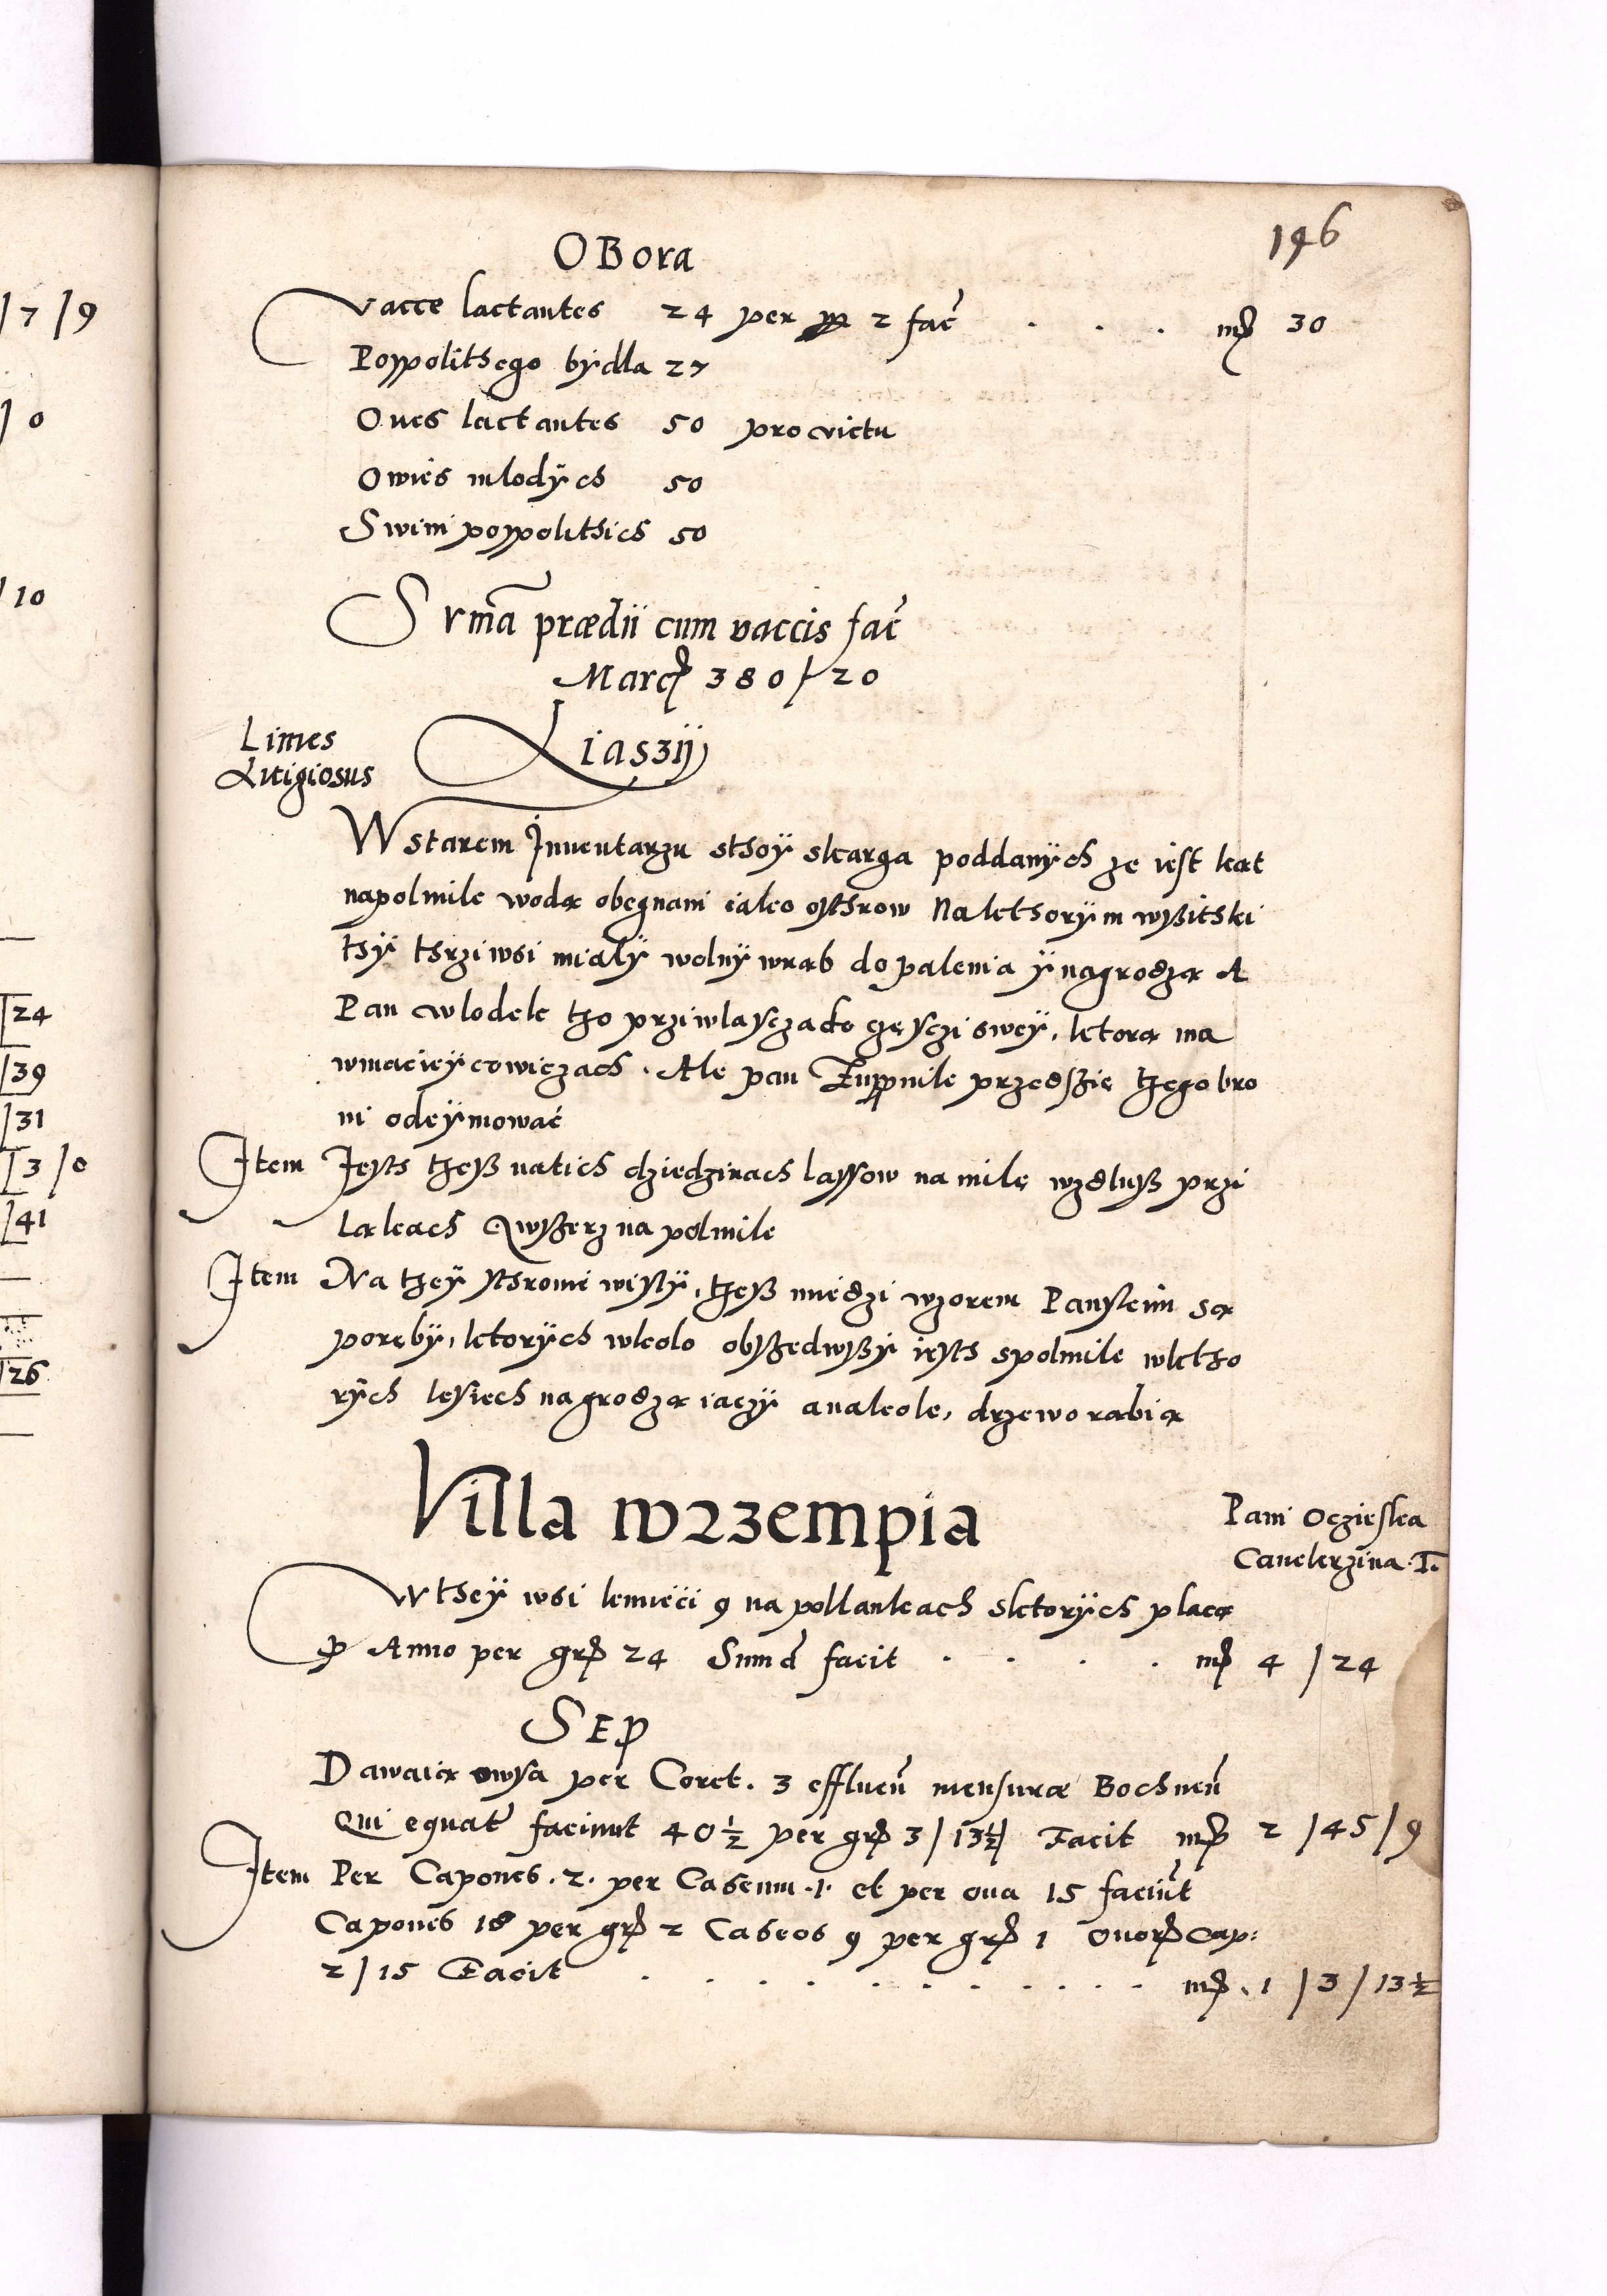 146
OBora
Vacce lactantes 24 per 2 fac̃ . . . mꝝ 30
Pospolithego bÿdla 27
Oues lactantes 50 pro victu
Owiès mlodÿch 50
Swini pospolithich 50
Svm̃a prædii cum vaccis fac̃
Marcꝝ 380/20
Limes
Litigiosus
Liaszÿ
W starem Inuentarzu sthoÿ skarga poddanÿch ze iest kąt
napolmile wodą obegnani iako osthrow Na kthorÿm wßitski
thÿ thrzi wsi mialÿ wolnÿ wrąb do palenia ÿ nagrodzą A
Pan wlodek tho prziwlascza do częsczi sweÿ, ktorą ma
w macieÿcowiczach. Ale pan Zuppnik przedszię thego bro
ni odeÿmowac
Item Jesth theß natich dziedzinach lassow na milę wzdlusß przi
Ląkach Qwßerz na polmile
Item Na theÿ sthronie wislÿ, theß miedzi wzorem Panskim są
porębÿ, ktorÿch wkolo obßedwßÿ iesth spolmile wktho
rÿch lesiech na grodzą iaczÿ a na kole, drzewo rąbią
Villa wrzempia
Pani Oczieska
Canclerzina .T.
W theÿ wsi kmieci 9 na pollankach sktorÿch placą
ꝓ Anno per grꝝ 24 Sum̃a facit . . . . mꝝ 4 / 24
SEP
Dawaią owsa per Coret. 3 effluen̄ mensuræ Bochnen̄
Qui equat̃ faciunt 40½ per grꝝ 3/13½ Facit mꝝ 2 /45/9
Item Per Capones .2. per Caseum .1. et per oua 15 faciũt
Capones 18 per grꝝ 2 Caseos 9 per grꝝ 1 Ouorꝝ Cap:
2/15 Facit . . . . . . . . . . mꝝ. 1 /3/13½
/7/9
/0
/10
24
39
31
3/0
41
26